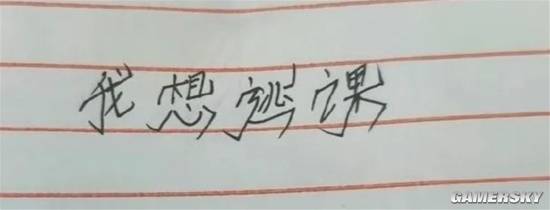 我想逃课
GAMERSKY